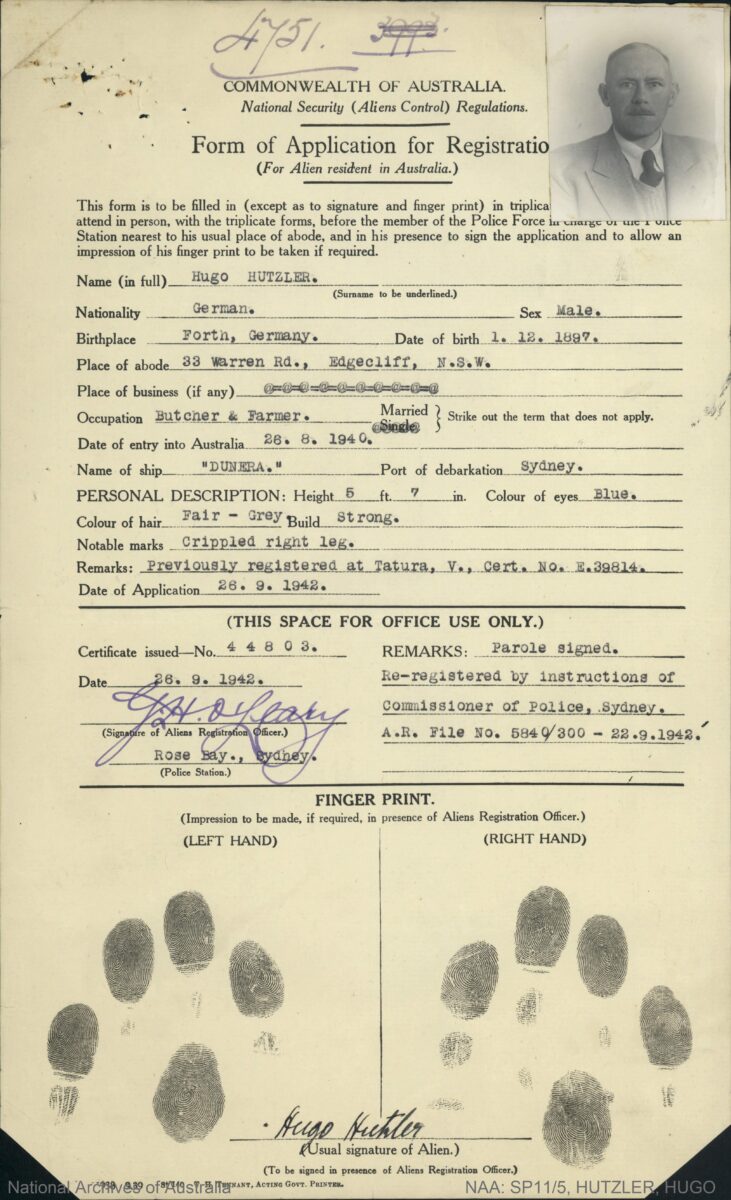 4751. 3993.
COMMONWEALTH OF AUSTRALIA.
National Security (Aliens Control) Regulations.
Form of Application for Registratio
(For Alien resident in Australia.)
This form is to be filled in (except as to signature and finger print) in triplica
attend in person, with the triplicate forms, before the member of the Police Force in charge of the Police
Station nearest to his usual place of abode, and in his presence to sign the application and to allow an
impression of his finger print to be taken if required.
Name (in full) Hugo HUTZLER.
(Surname to be underlined.)
Nationality German. Sex Male.
Birthplace Forth, Germany. Date of birth 1. 12. 1897.
Place of abode 33 Warren Rd., Edgecliff, N.S.W.
Place of business (if any) @=@=@=@=@=@=@=@=@
Occupation Butcher & Farmer. Married Single } Strike out the term that does not apply.
Date of entry into Australia 26. 8. 1940.
Name of ship "DUNERA." Port of debarkation Sydney.
PERSONAL DESCRIPTION: Height 5 ft. 7 in. Colour of eyes Blue.
Colour of hair Fair - Grey. Build Strong.
Notable marks Crippled right leg.
Remarks: Previously registered at Tatura, V., Cert. No. E.39814.
Date of Application 26. 9. 1942.
(THIS SPACE FOR OFFICE USE ONLY.)
Certificate issued—No. 4 4 8 0 3. REMARKS: Parole signed.
Date 26. 9. 1942. Re-registered by instructions of
Commissioner of Police, Sydney.
G.H. O'Leary
(Signature of Aliens Registration Officer.) A.R. File No. 5840/300 - 22.9.1942.
Rose Bay., Sydney.
(Police Station.)
FINGER PRINT.
(Impression to be made, if required, in presence of Aliens Registration Officer.)
(LEFT HAND) (RIGHT HAND)
Hugo Hutzler
(Usual signature of Alien.)
(To be signed in presence of Aliens Registration Officer.)
TENNANT, ACTING GOVT. PRINTER.
National Archives of Australia NAA: SP11/5, HUTZLER, HUGO